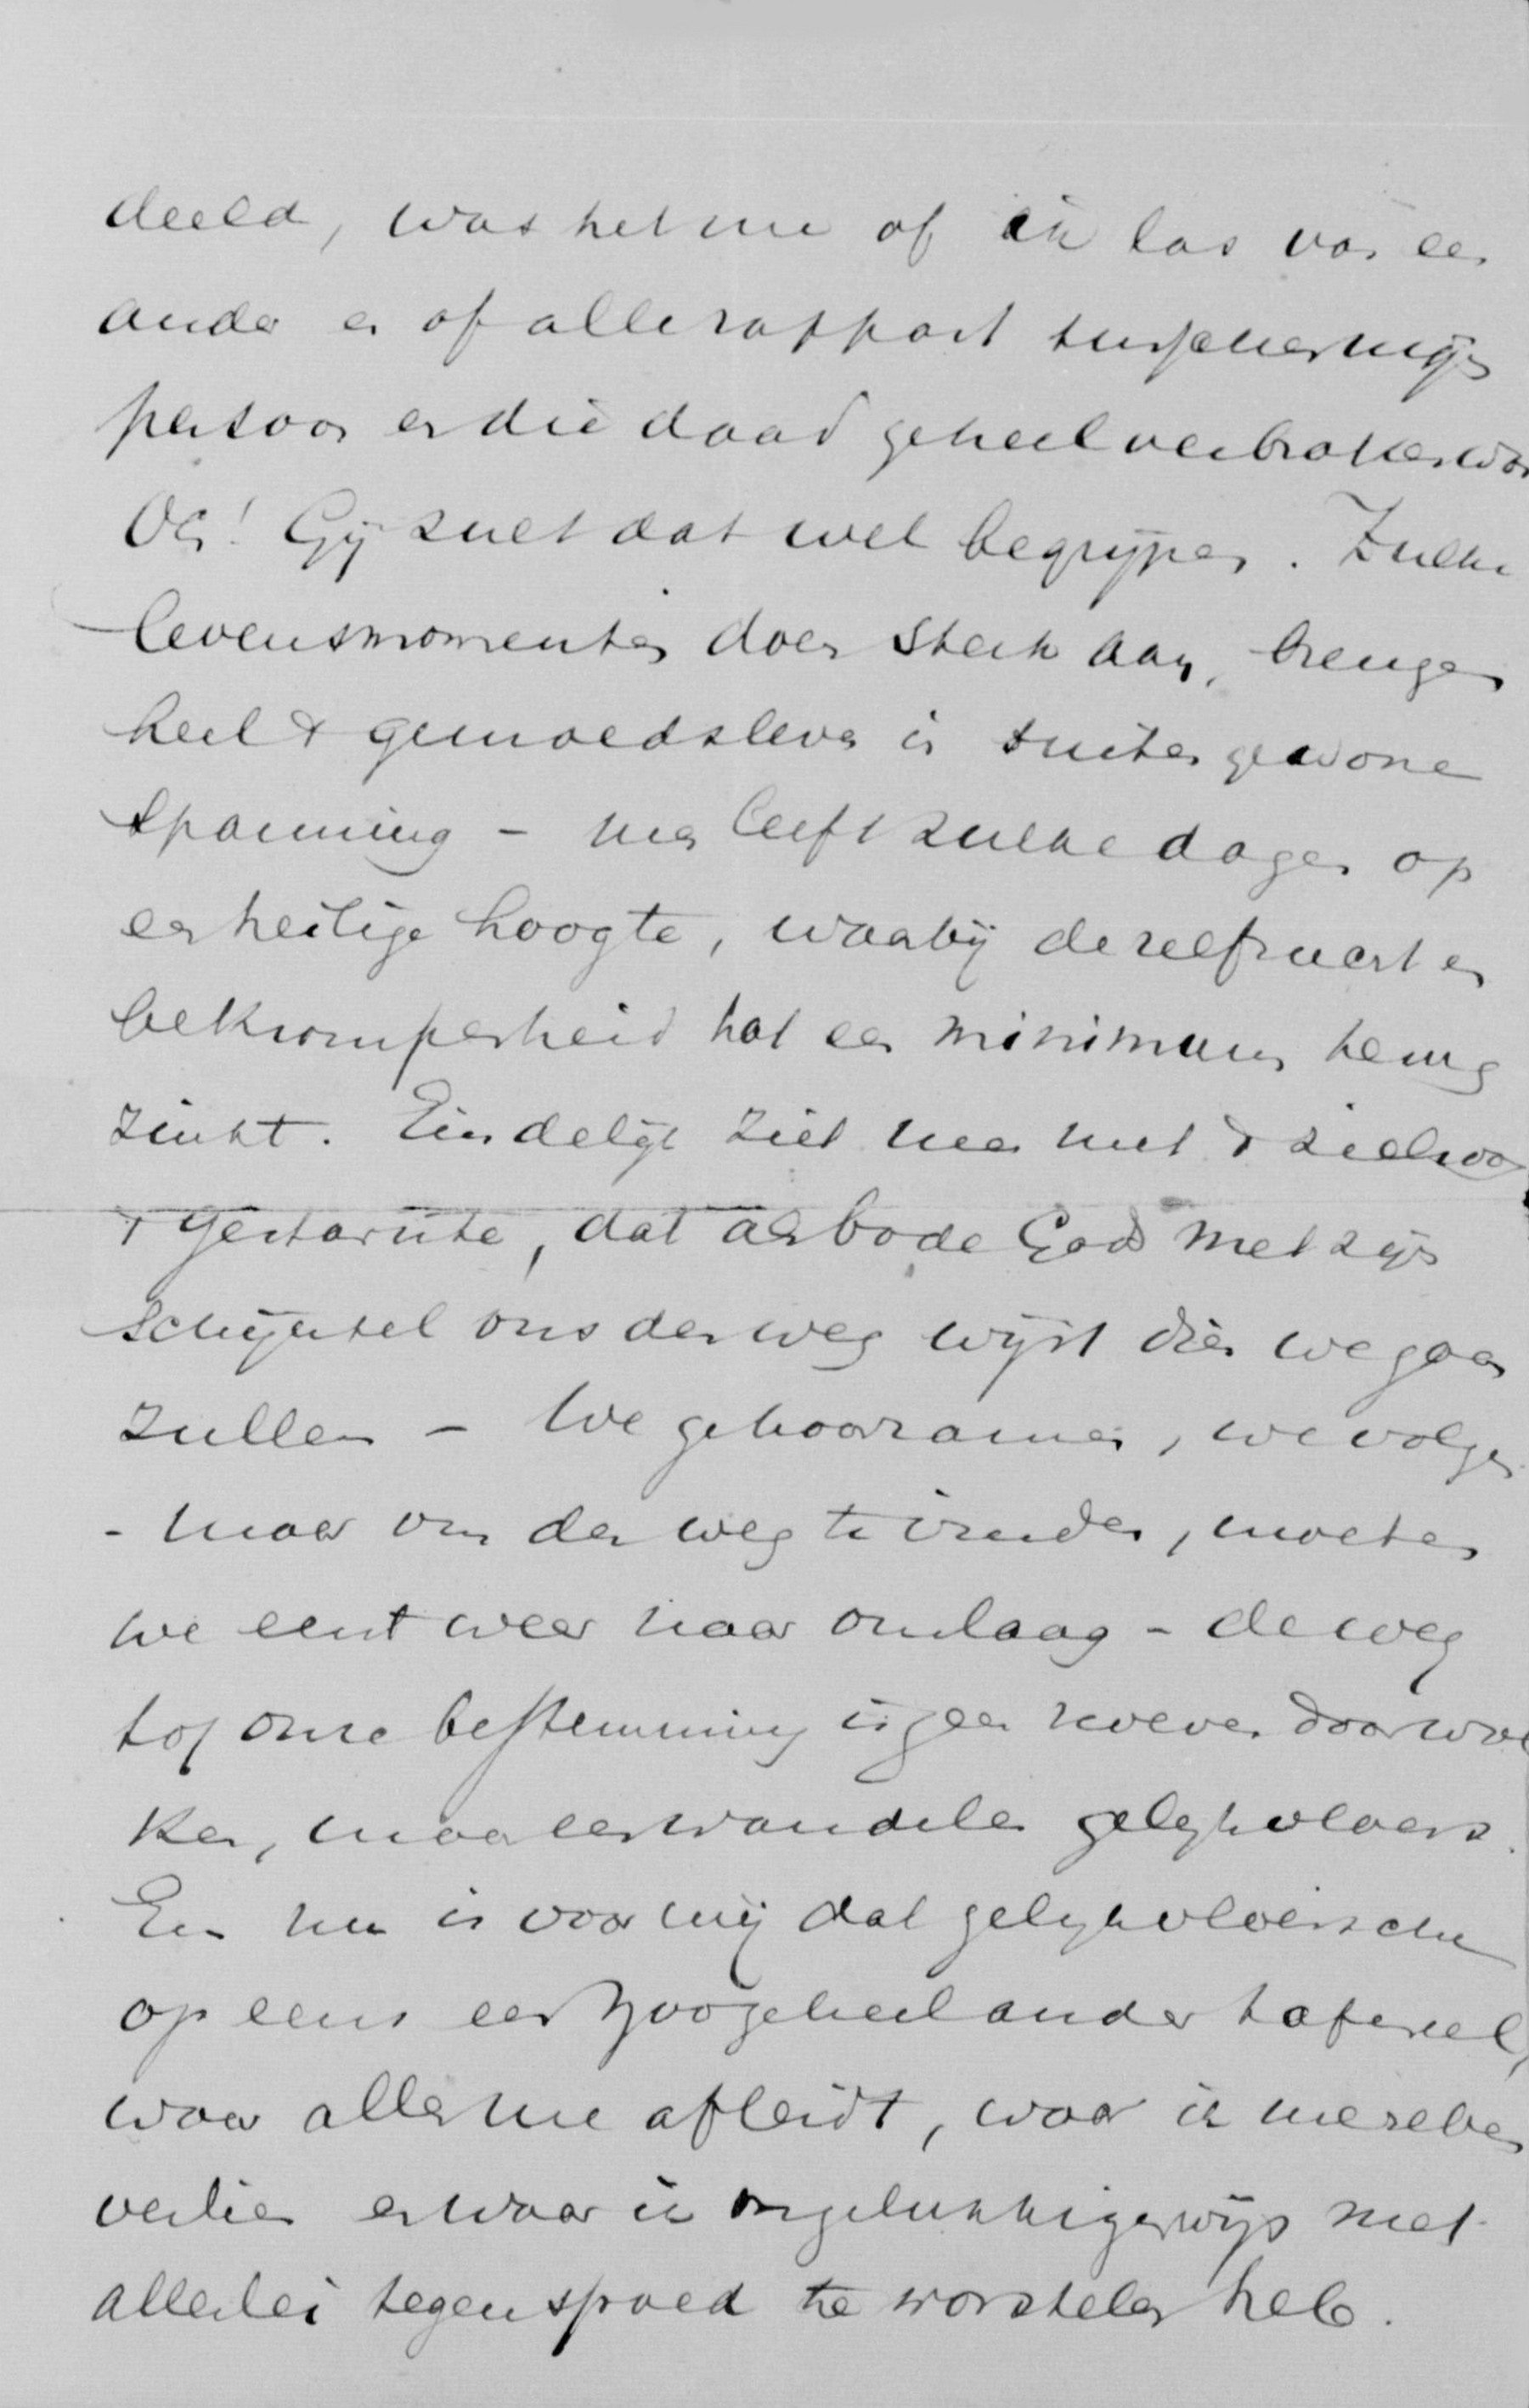 deeld, was het me of ik las van een
ander en of alle rapport tusschen mijn
persoon en die daad geheel verbroken was
Och! Gij zult dat wel begrijpen. Zulke
levensmomenten doen sterk aan, brengen
heel 't gemoedsleven in buitengewone
spanning - men leeft zulke dagen op
een heilige hoogte, waarbij de zelfzucht en
bekrompenheid tot een minimum terug
zinkt. Eindelijk ziet men met 't
't gestarnte, dat als bode Gods met zijn
schijnsel ons den weg wijst dien we gaan
zullen - We gehoorzamen, we volgen
- maar om den weg te vinden, moeten
we eerst weer naar omlaag - de weg
tot onze bestemming is geen zweven door wol
ken, maar een wandelen gelijkvloers.
En nu is voor mij dat gelijkvloersche
op eens een zoo geheel ander tafereel,
waar alles me afleidt, waar ik me zelven
verlies en waar ik ongelukkigerwijs met
allerlei tegenspoed te worstelen heb.